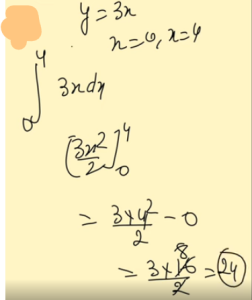 y = 3x
x = 0, x = 4
∫₀⁴ 3x dx
[3x²/2]₀⁴
= 3×4²/2 - 0
= 3×16/2 = 24
8